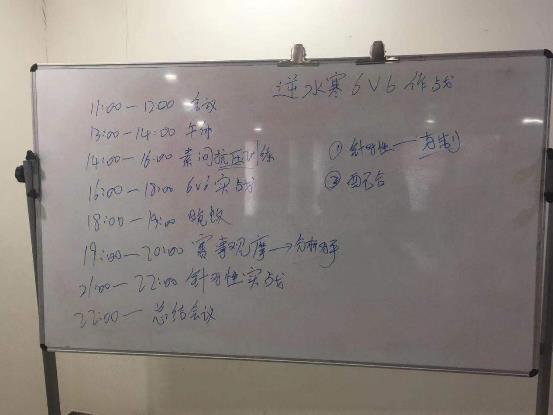 逆水寒 6V6 作战
11:00—12:00 会议
13:00—14:00 午休
14:00—16:00 素问抗压训练
16:00—18:00 6V6 实战
18:00—19:00 晚饭
19:00—20:00 赛事观摩→分析对手
21:00—22:00 针对性实战
22:00— 总结会议
① 针对性——克制
② 配合